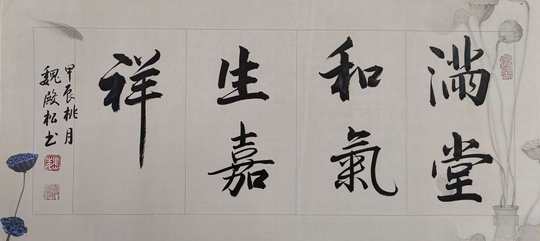 满堂
和氣
生嘉
祥
甲辰桃月
魏殿松书